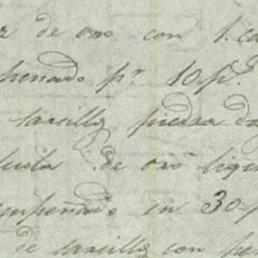 de oro con 1. ca
penado pr. 10 ps.
sarcillo piedra d
de oro liqu
empeñado en 30 p
de sarcillo con pe